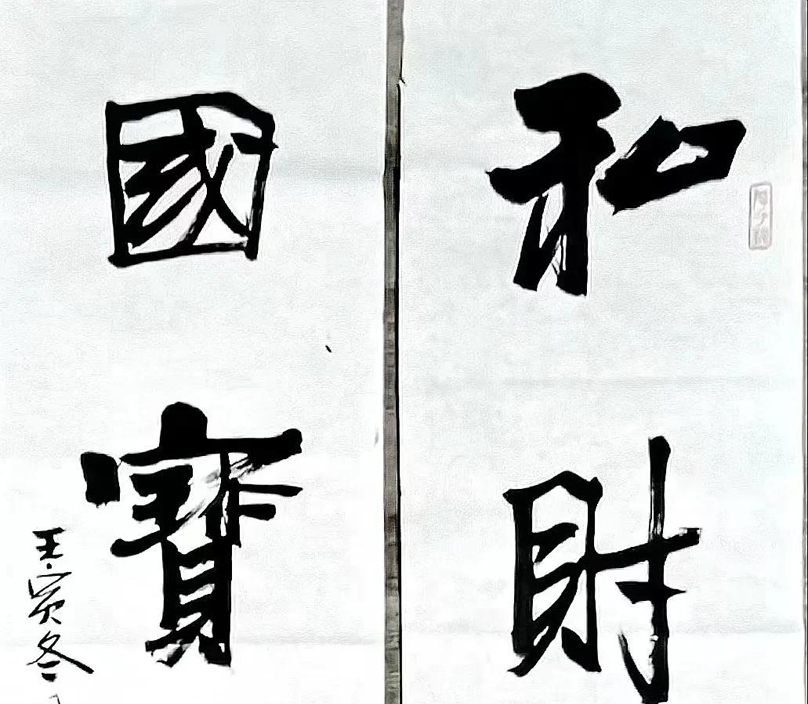 和財
國寶
壬寅冬